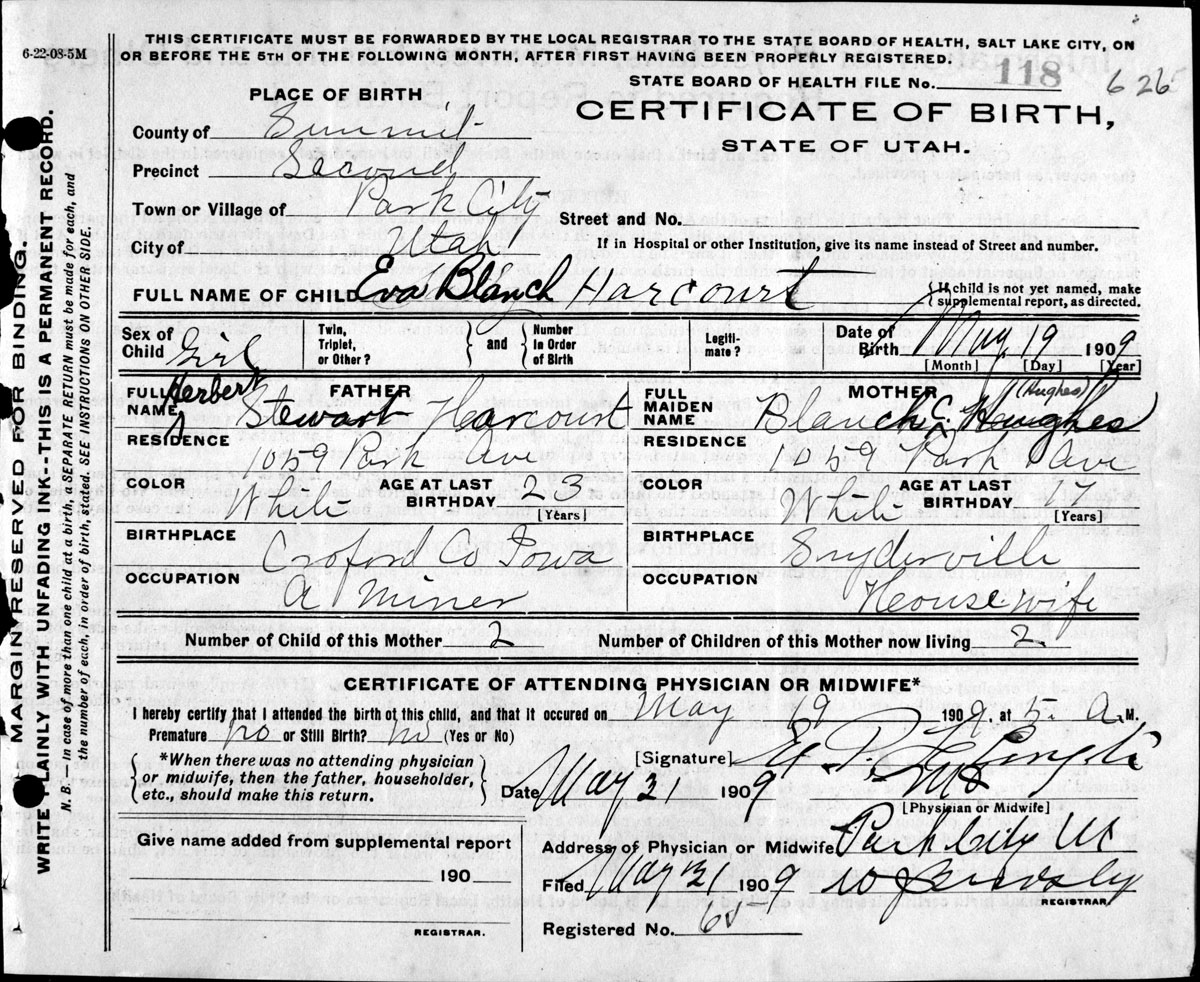 6-22-08-5M
THIS CERTIFICATE MUST BE FORWARDED BY THE LOCAL REGISTRAR TO THE STATE BOARD OF HEALTH, SALT LAKE CITY, ON
OR BEFORE THE 5TH OF THE FOLLOWING MONTH, AFTER FIRST HAVING BEEN PROPERLY REGISTERED.
STATE BOARD OF HEALTH FILE No. 118 626
PLACE OF BIRTH
CERTIFICATE OF BIRTH,
STATE OF UTAH.
County of Summit
Precinct Second
Town or Village of Park City
Street and No.
City of Utah
If in Hospital or other Institution, give its name instead of Street and number.
FULL NAME OF CHILD Eva Blanch Harcourt
{If child is not yet named, make
supplemental report, as directed.
Sex of Child Girl
Twin, Triplet, or Other?
} and {
Number in Order of Birth
Legiti- mate?
Date of Birth May 19 1909
[Month] [Day] [Year]
FULL NAME FATHER Herbert Stewart Harcourt
FULL MAIDEN NAME MOTHER Blanch C. Haughes (Hughes)
RESIDENCE 1059 Park Ave
RESIDENCE 1059 Park Ave
COLOR White AGE AT LAST BIRTHDAY 23 [Years]
COLOR White AGE AT LAST BIRTHDAY [Years]
BIRTHPLACE Croford Co Iowa
BIRTHPLACE Snyderville
OCCUPATION A Miner
OCCUPATION Heouse wife
Number of Child of this Mother 2
Number of Children of this Mother now living 2
CERTIFICATE OF ATTENDING PHYSICIAN OR MIDWIFE*
I hereby certify that I attended the birth of this child, and that it occured on May 19 1909, at 3. A M.
Premature no or Still Birth? no (Yes or No)
[Signature]
{*When there was no attending physician
or midwife, then the father, householder,
etc., should make this return.}
Date May 21 1909
[Physician or Midwife]
Give name added from supplemental report
190
REGISTRAR.
Address of Physician or Midwife Park City Ut
Filed May 21 1909
REGISTRAR.
Registered No. 65
MARGIN RESERVED FOR BINDING.
WRITE PLAINLY WITH UNFADING INK--THIS IS A PERMANENT RECORD.
N. B.—In case of more than one child at a birth, a SEPARATE RETURN must be made for each, and
the number of each, in order of birth, stated. SEE INSTRUCTIONS ON OTHER SIDE.